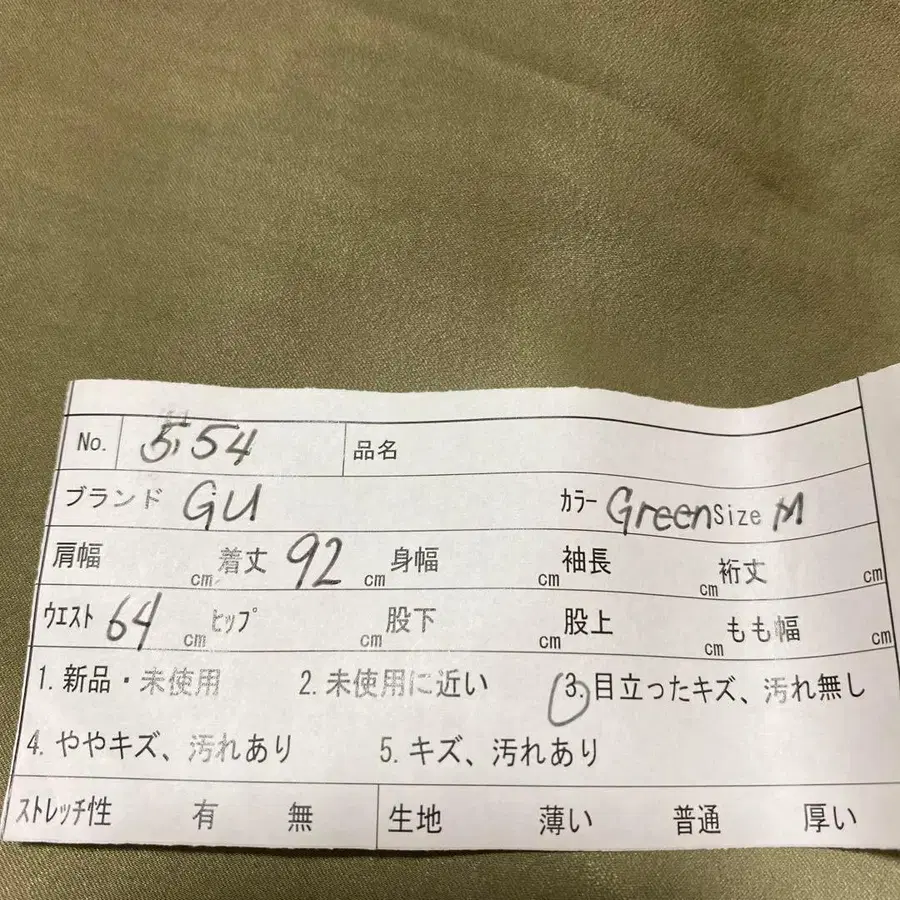 No. 5,54 品名
ブランド GU カラー Green Size M
肩幅 cm 着丈 92 cm 身幅 cm 袖長 cm 裄丈 cm
ウエスト 64 cm ヒップ cm 股下 cm 股上 cm もも幅 cm
1. 新品・未使用 2. 未使用に近い 3. 目立ったキズ、汚れ無し
4. ややキズ、汚れあり 5. キズ、汚れあり
ストレッチ性 有 無 生地 薄い 普通 厚い